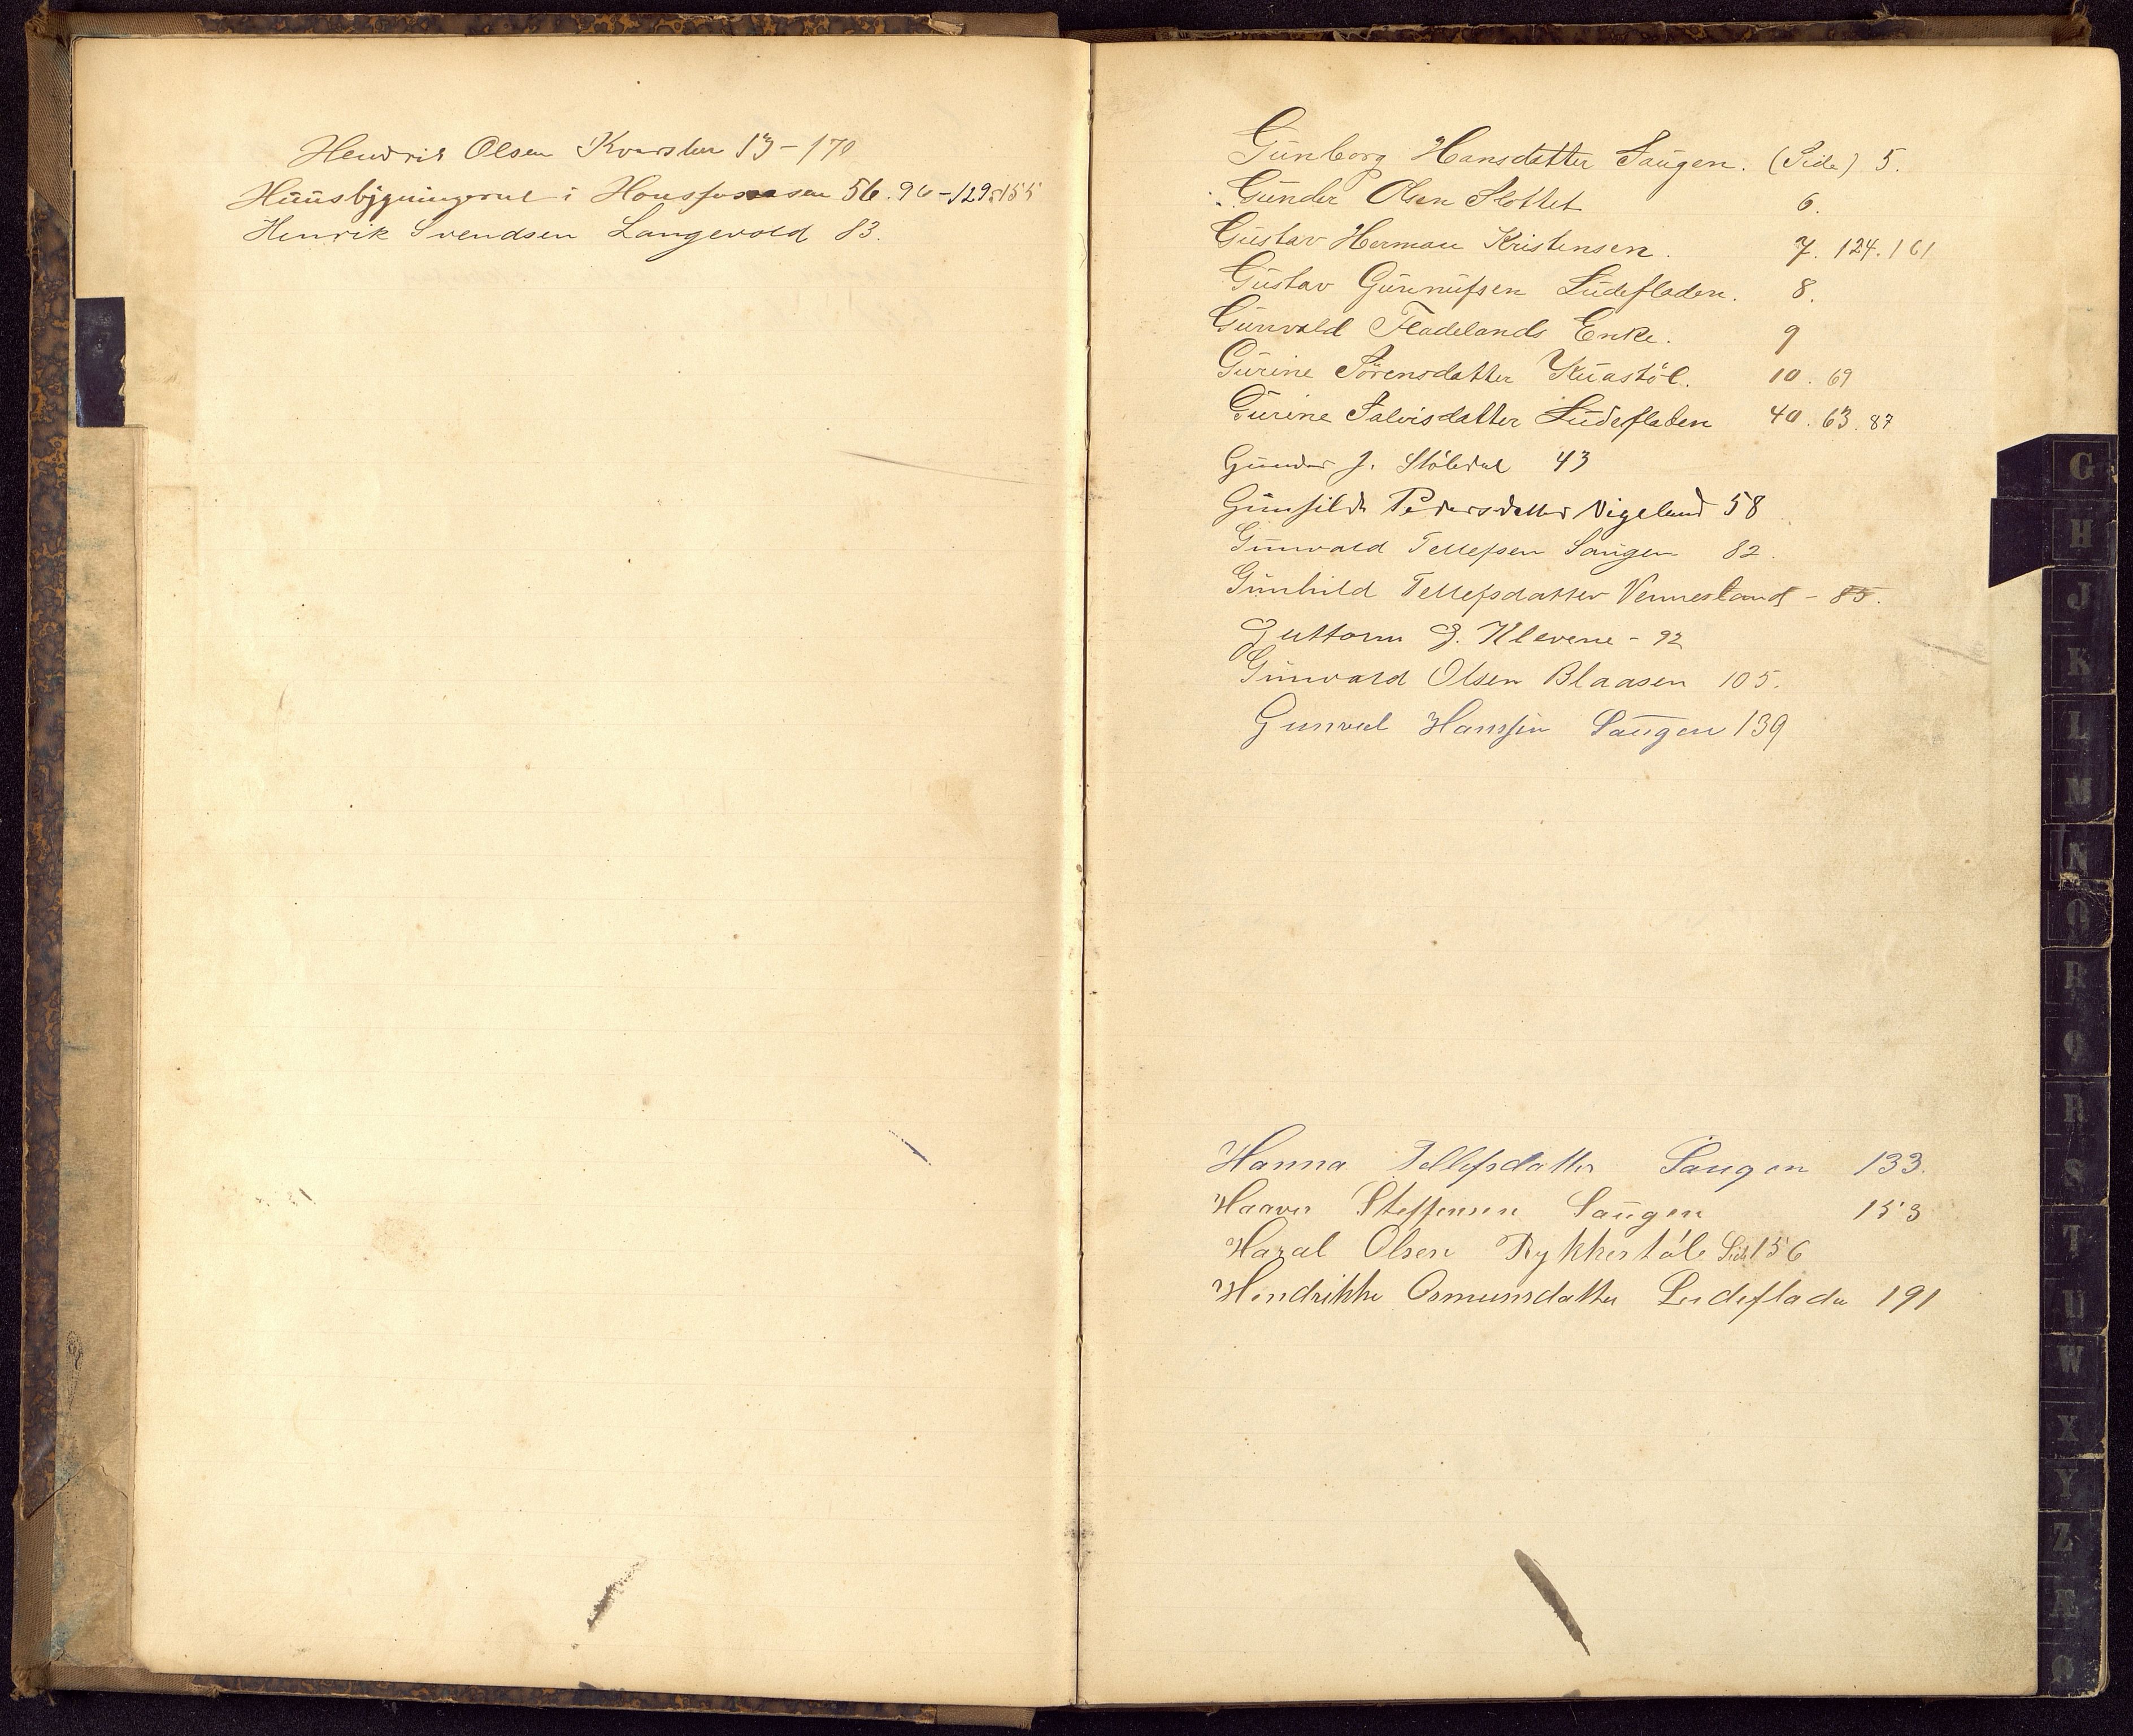 Hendrik Olsen 13 - 170
Huusbygningerne i 56. 96 - 129. 155
Henrik Svendsen Langevold 83.
Gunborg Hansdatter Saugen. (Side) 5.
Gunder Olsen Slottet 6.
Gustav Herman Kristensen. 7. 124. 161
Gustav Gunnufsen Ludefladen. 8.
Gunvald Fladelands Enke. 9
Gurine Sörensdatter Kuastöl. 10. 69
Gurine Salvisdatter Ludefladen 40. 63. 87
Gunder J. Stöledal 43
Gunhild Pedersdatter Vigeland 58
Gunvald Tellefsen Saugen 82.
Gunhild Tellefsdatter Vennesland - 85.
Guttorm G. Klevene - 92
Gunvald Olsen Blaasen 105.
Gunvel Hansen Saugen 139
Hanna Tellefsdatter Saugen 133.
Haaver Steffensen Saugen 153
Haral Olsen Rykkerstöle Side 156
Hendrikke Osmunsdatter Ludeflade 191
G
H
J
K
L
M
N
O
P
Q
R
S
T
U
W
X
Y
Z
Æ
Ø